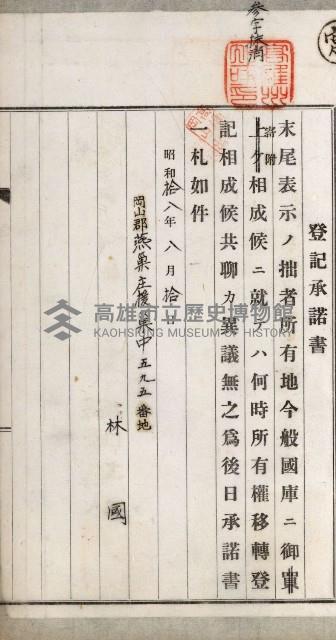 參字抹消
登記承諾書
末尾表示ノ拙者所有地今般國庫ニ御買
上ケ相成候ニ就テハ何時所有權移轉登
寄附
記相成候共聊カ異議無之爲後日承諾書
一札如件
昭和拾八年八月拾日
岡山郡燕巢庄援巢中五九五番地
林 國
高雄市立歷史博物館
KAOHSIUNG MUSEUM OF HISTORY